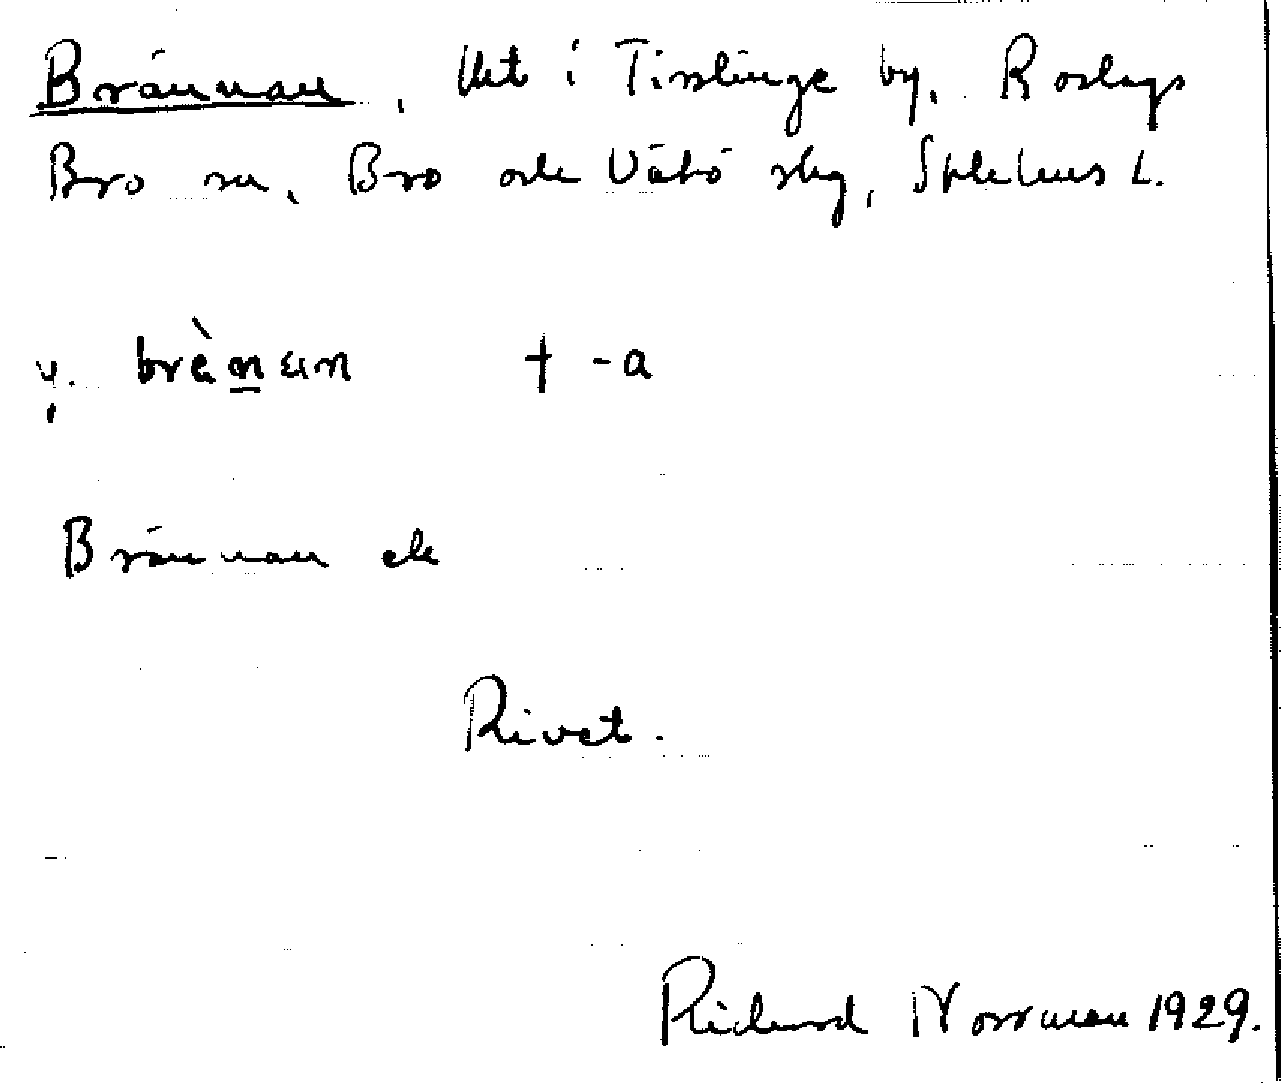 Brännan, lht i Tisslinge by, Roslags
Bro sn, Bro och Vätö skg, Sthlms L.
y. brän̲an † -a
Brännan ek
Rivet.
Richard Norrman 1929.